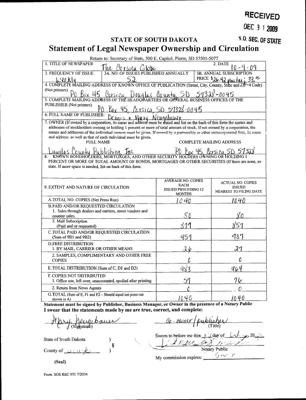 RECEIVED
DEC 31 2009
S.D. SEC. OF STATE
STATE OF SOUTH DAKOTA
Statement of Legal Newspaper Ownership and Circulation
Return to: Secretary of State, 500 E. Capitol, Pierre, SD 57501-5077
1. TITLE OF NEWSPAPER
The Corsica Globe
2. DATE
10-4-09
3. FREQUENCY OF ISSUE
Weekly
3A. NO. OF ISSUES PUBLISHED ANNUALLY
52
3B. ANNUAL SUBSCRIPTION
PRICE
4. COMPLETE MAILING ADDRESS OF KNOWN OFFICE OF PUBLICATION (Street, City, County, State and Zip+4 Code)
(Not printers)
PO Box 45 Corsica, Douglas County, SD 57328-0045
5. COMPLETE MAILING ADDRESS OF THE HEADQUARTERS OR GENERAL BUSINESS OFFICES OF THE
PUBLISHER (Not printers)
PO Box 45 Corsica SD 57328-0045
6. FULL NAME OF PUBLISHER:
7. OWNER (If owned by a corporation, its name and address must be stated and listed on the back of the form the names and
addresses of stockholders owning or holding 1 percent or more of total amount of stock. If not owned by a corporation, the
names and addresses of the individual owners must be given. If owned by a partnership or other unincorporated firm, its name
and address, as well as that of each individual must be given.
FULL NAME
COMPLETE MAILING ADDRESS
Douglas County Publishing, Inc
PO Box 45, Corsica SD 57328
8. KNOWN BONDHOLDERS, MORTGAGES, AND OTHER SECURITY HOLDERS OWNING OR HOLDING 1
PERCENT OR MORE OF TOTAL AMOUNT OF BONDS, MORTGAGES OR OTHER SECURITIES (If there are none, so
state. If more space is needed, list on back of this form.
9. EXTENT AND NATURE OF CIRCULATION
AVERAGE NO. COPIES
EACH
ISSUES PRECEDING 12
MONTHS
ACTUAL NO. COPIES
ISSUED
NEAREST TO FILING DATE
A. TOTAL NO. COPIES (Net Press Run)
1040
1040
B. PAID AND/OR REQUESTED CIRCULATION
1. Sales through dealers and carriers, street vendors and
counter sales.
80
80
2. Mail Subscription
(Paid and or requested)
C. TOTAL PAID AND/OR REQUESTED CIRCULATION
(Sum of 9B1 and 9B2)
937
D. FREE DISTRIBUTION
1. BY MAIL, CARRIER OR OTHER MEANS
27
2. SAMPLES, COMPLIMENTARY AND OTHER FREE
COPIES
0
0
E. TOTAL DISTRIBUTION (Sum of C, D1 and D2)
964
F. COPIES NOT DISTRIBUTED
1. Office use, left over, unaccounted, spoiled after printing
76
Return from News Agents
0
0
G. TOTAL (Sum of E, F1 and F2 - Should equal net press run
shown in A)
1040
1040
Statement must be signed by Publisher, Business Manager, or Owner in the presence of a Notary Public
I swear that the statements made by me are true, correct, and complete:
(Signature)
co-owner/publisher
(Title)
State of South Dakota
County of
(Seal)
Notary Public
My commission expires:
Form: SOS REC 051 7/2004